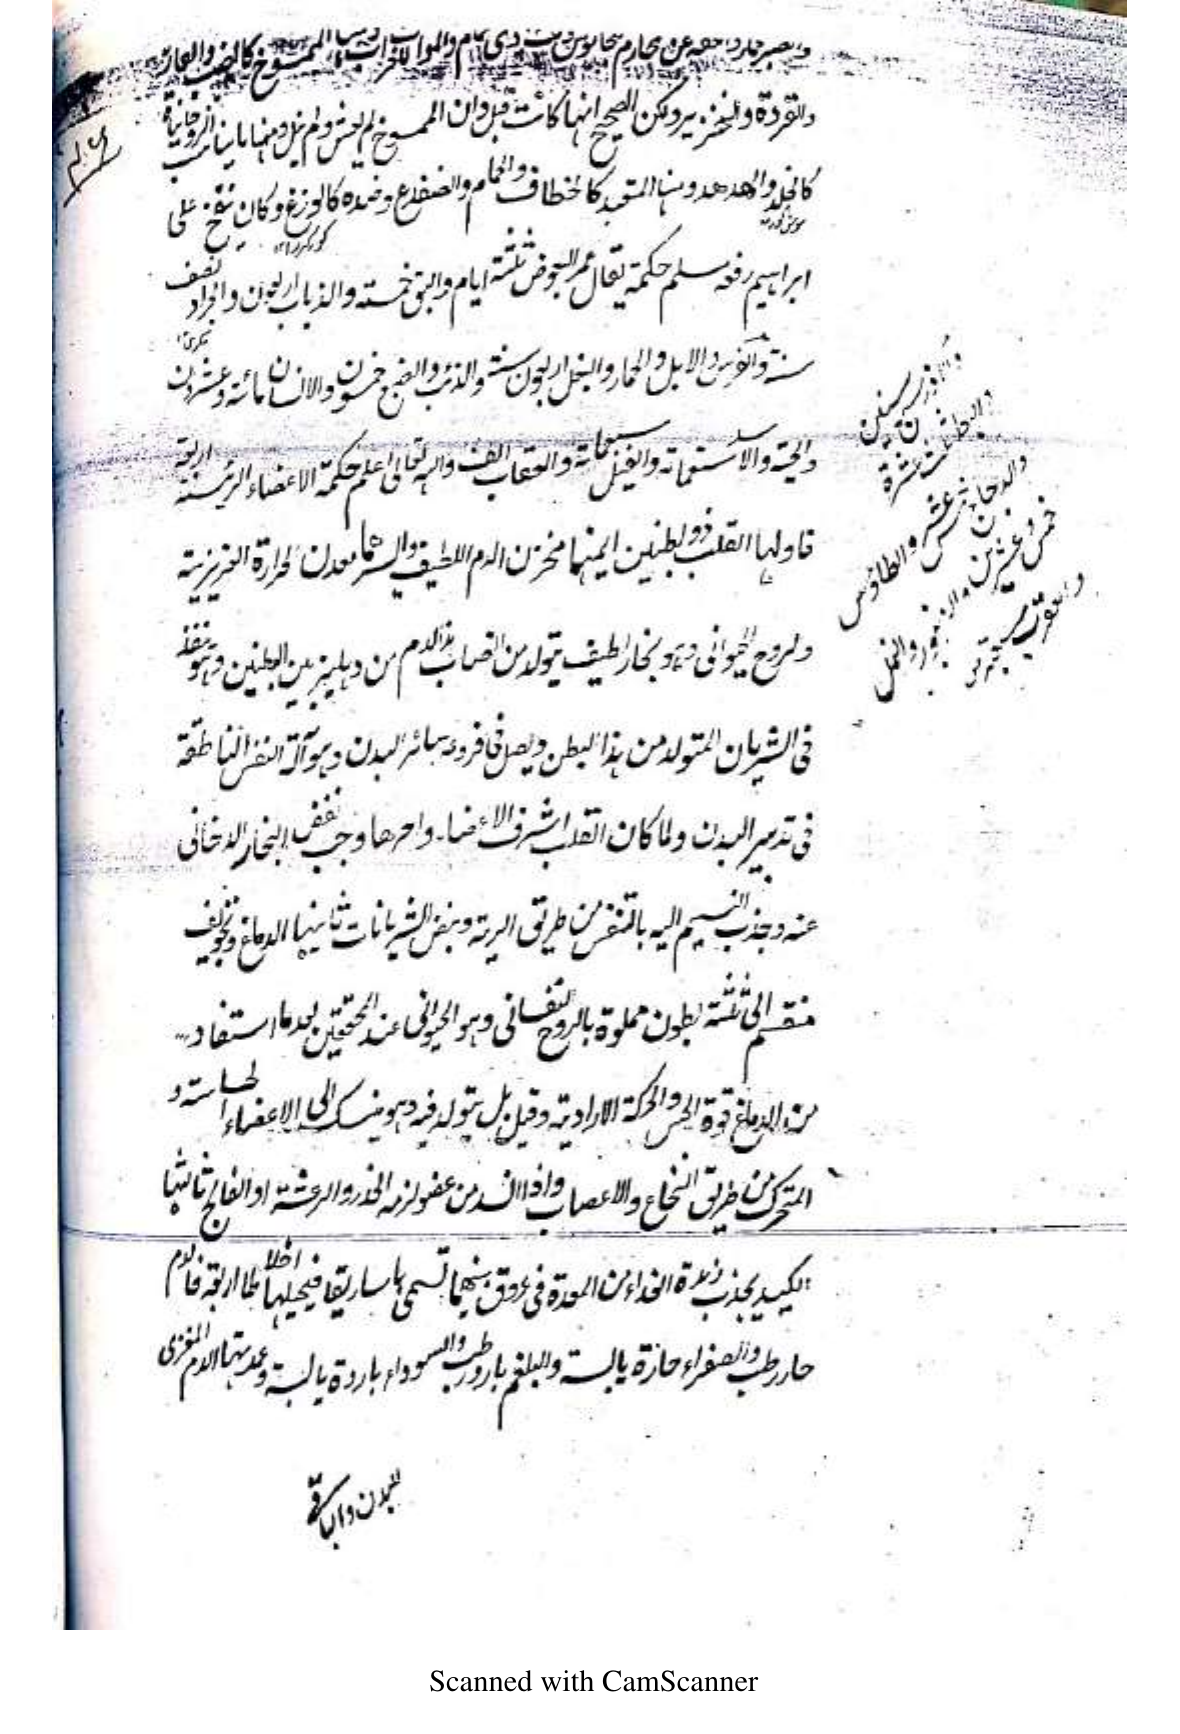 والقردة والخنزير ولكن الصحيح انها كانت قبل وان الممسوخ لم يعش ولم ينل ومنها ما يناسب الروحانية
كالخلد والهدهد ومنها المتعبد كالخطاف والحمام والضفدع وضده كالوزغ وكان ينفخ على
ابراهيم رفعه مسلم حكمة يقال عمر البعوض ثلثة ايام والبق خمسة والذباب اربعون والجراد نصف
سنة والفرس والابل والحمار والبغل اربعون سنة والذئب والضبع خمسون والانسان مائة وعشرون
والحية والاسد ستمائة والفيل سبعمائة والعقاب الف والله تعالى اعلم حكمة الاعضاء الرئيسة اربعة
فاولها القلب ذو بطنين ايمنهما مخزن الدم اللطيف وايسرهما معدن الحرارة الغريزية
والروح الحيوانى وهو بخار لطيف يتولد من انصباب هذا الدم من دهليز بين البطنين وهو منفذ
فى الشريان المتولد من هذا البطن ويصل فى فروعه سائر البدن وهو آلة النفس الناطقة
فى تدبير البدن ولما كان القلب اشرف الاعضاء واحرها وجب نفض البخار الدخانى
عنه وجذب النسيم اليه بالتنفس من طريق الرية ونبض الشريانات ثانيها الدماغ وتجويفه
منقسم الى ثلثة بطون مملوة بالروح النفسانى وهو الحيوانى عند المحققين بعد ما استفاد
من الدماغ قوة الحس والحركة الارادية وقيل بل يتولد فيه وهو ينسلك الى الاعضاء الحساسة و
المتحركة من طريق النخاع والاعصاب واذا انسد من عضو لزمه الخدر والرعشة او الفالج ثالثها
الكبد يجذب زبدة الغذاء من المعدة فى عروق بينهما تسمى ماساريقا فيحيلها اخلاطا اربعة فالدم
حار رطب والصفراء حارة يابسة والبلغم بارد رطب والسوداء باردة يابسة وعمدتها الدم المغزى
للبدن والباقى
والاوز سنين
والدجاجة عشر
والطاؤس
خمس وعشرين
والنمل
Scanned with CamScanner